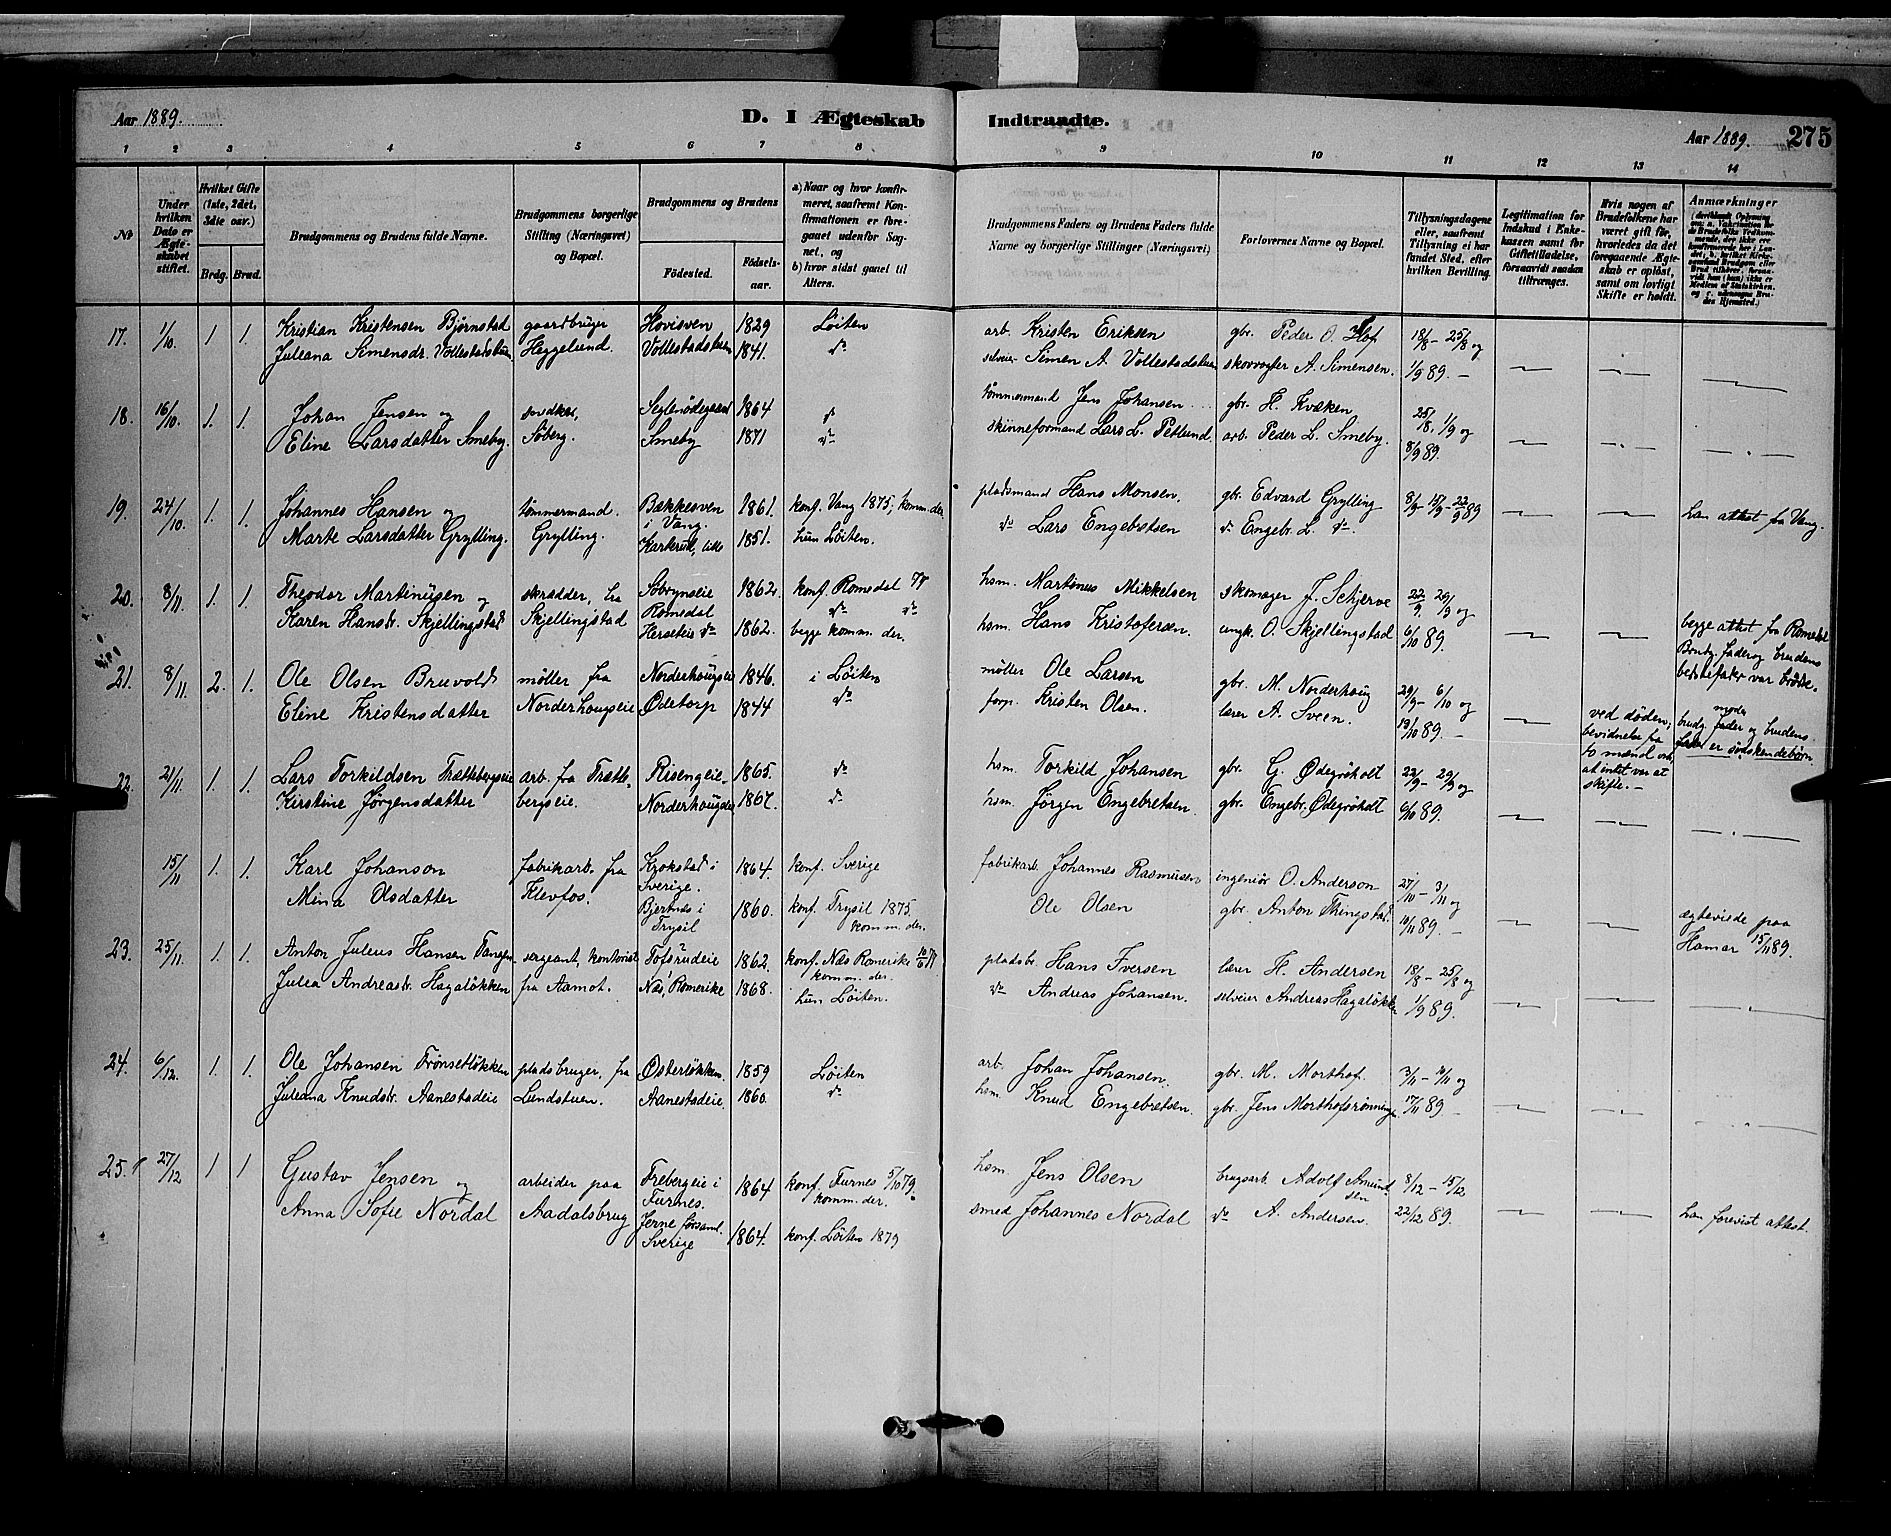 Aar 1889.
D. I Ægteskab Indtraadte.
Aar 1889. 275
1 2 3 4 5 6 7 8 9 10 11 12 13 14
No
Under hvilken Dato er Ægteskabet stiftet.
Hvilket Gifte (1ste, 2det, 3die osv.)
Brdg. Brud.
Brudgommens og Brudens fulde Navne.
Brudgommens borgerlige Stilling (Næringsvei) og Bopæl.
Brudgommens og Brudens
Fødested. Fødselsaar.
a) Naar og hvor konfirmeret, saafremt Konfirmationen er foregaaet udenfor Sognet, og
b) hvor sidst gaaet til Alters.
Brudgommens Faders og Brudens Faders fulde Navne og borgerlige Stillinger (Næringsvei)
Forlovernes Navne og Bopæl.
Tillysningsdagene eller, saafremt Tillysning ei har fundet Sted, efter hvilken Bevilling.
Legitimation for Indskud i Enkekassen samt for Giftetilladelse, forsaavidt saadan tiltrænges.
Hvis nogen af Brudefolkene har været gift før, hvorledes da det foregaaende Ægteskab er opløst, samt om lovligt Skifte er holdt.
Anmærkninger
17. 1/10. 1 1. Kristian Kristensen Bjørnstad gaardbruger Hovisven 1829 Löiten arb. Kristen Eriksen gbr. Peder O. Hof 18/8 - 25/8 og
Juleana Simensdr. Vollestadstuen Heggelund. Vollestadstuen 1841. do selveier Simen A. Vollestadstuen skovvogter A. Simensen. 1/9 89. -
18. 16/10. 1. 1. Johan Jensen og snedker, Seglerødegaard 1864 do tømmermand Jens Johansen gbr. H. Kvæken 25/8. 1/9 og
Eline Larsdatter Smeby. Söberg. Smeby 1871 do skinneformand Lars L. Petlund. arb. Peder L. Smeby. 8/9 89.
19. 24/10. 1. 1. Johannes Hansen og tømmermand. Bækkesven i Vang. 1861. konf. Vang 1875; komm. der. pladsmand Hans Monsen. gbr. Edvard Grylling 8/9 - 15/9 - 22/9 89 han attest fra Vang.
Marte Larsdatter Grylling. Grylling. Karterud, lille 1851. hun Löiten. do Lars Engebretsen do Engebr. L. do
20. 8/11. 1. 1. Theodor Martinusen og skrædder, fra Sobrynseie Romedal 1862. konf. Romedal 77 hsm. Martinus Mikkelsen skomager J. Schjerve 22/9. 29/9 og
Karen Hansdr. Skjellingstad Skjellingstad Herseteie do 1862. begge komm. der. hsm. Hans Kristofersen. ungk. O. Skjellingstad 6/10 89. begge attest fra Romedal Brudg. fader og brudens bedstefader var brödre.
21. 8/11. 2. 1. Ole Olsen Bruvold möller fra Norderhougseie 1846. i Löiten möller Ole Larsen gbr. M. Norderhoug 29/9 - 6/10 og
Eline Kristensdatter Norderhougseie Ödetorp 1844 do forp. Kristen Olsen. lærer A. Sveen. 13/10 89. - ved döden; bevidnelse fra to mænd om, at intet var at skifte. - brudg. moder og brudens fader er södskendebörn
22. 21/11. 1. 1. Lars Torkildsen Trættebergseie arb. fra Trættebergseie. Risengeie 1865. do hsm. Torkild Johansen gbr. G. Ödegröholt 22/9 - 29/9 og
Kirstine Jörgensdatter Norderhougseie 1867. do hsm. Jörgen Engebretsen. gbr. Engebr. Ödegröholt 6/10 89.
15/11 1. 1. Karl Johanson fabrikarb. fra Krokstad i Sverige. 1864. konf. Sverige fabrikarb. Johannes Rasmusen ingeniör O. Anderson 27/10 - 3/11 og
Mina Olsdatter Klevfos. Bjertnes i Trysil 1860. konf. Trysil 1875. komm. der. Ole Olsen gbr. Anton Thingstad. 10/11 89. - ægteviede paa Hamar 15/11 89.
23. 25/11. 1. 1. Anton Julius Hansen Tangen sergeant, kontorist Tofsrudeie 1862. konf. Næs Romerike komm. der. pladsbr. Hans Iversen lærer H. Andersen 18/8 - 25/8 og
Julea Andreasdr. Hagalökken fra Aamot. Næs, Romerike 1868. hun Löiten. do Andreas Johansen. selveier Andreas Hagalökken 1/9 89.
24. 6/12. 1. 1. Ole Johansen Trönsetlökken pladsbruger, fra Österlökken. 1859 Löiten arb. Johan Johansen. gbr. M. Morthof. 3/11 - 10/11 og
Juleana Knudsdr. Aanestadeie Lundstuen. Aanestadeie. 1860. do hsm. Knud Engebretsen. gbr. Jens Morthofsrønningen 17/11 89 -
25. 27/12 1 1 Gustav Jensen og arbeider paa Trebergeie i Furnes. 1864 konf. Furnes 5/10 79. komm. der. hsm. Jens Olsen brugsarb. Adolf Amundsen 8/12 - 15/12
Anna Sofie Nordal Aadalsbrug Jerne forsaml. Sverige 1864. konf. Löiten 1879 smed Johannes Nordal do A. Andersen. 22/12 89. han forevist attest.